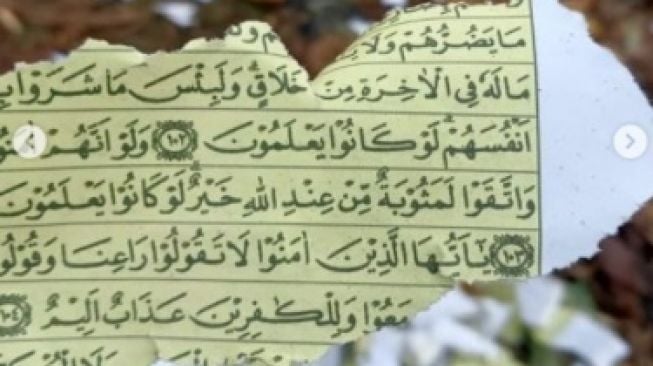 مَا يَضُرُّهُمْ وَلَا
مَالَهٗ فِي الْاٰخِرَةِ مِنْ خَلَاقٍ وَلَبِئْسَ مَا شَرَوْا
اَنْفُسَهُمْ لَوْ كَانُوْا يَعْلَمُوْنَ ۝١٠٢ وَلَوْ اَنَّهُمْ
وَاتَّقَوْا لَمَثُوْبَةٌ مِّنْ عِنْدِ اللهِ خَيْرٌ لَوْ كَانُوْا يَعْلَمُوْنَ
۝١٠٣ يٰٓاَيُّهَا الَّذِيْنَ اٰمَنُوْا لَا تَقُوْلُوْا رَاعِنَا وَقُوْلُوا
مَعُوْا وَلِلْكٰفِرِيْنَ عَذَابٌ اَلِيْمٌ ۝١٠٤